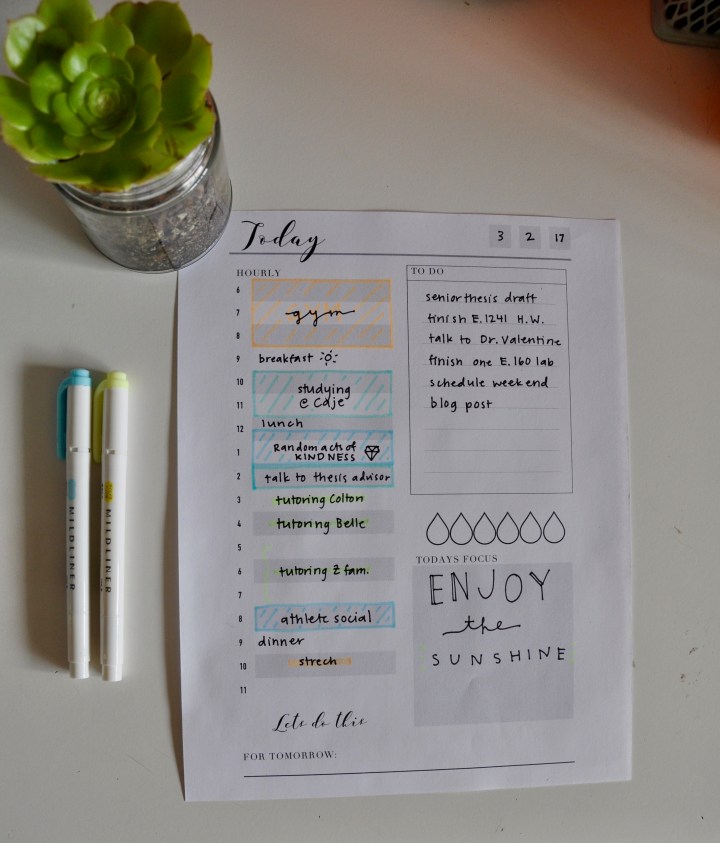 Today
3 2 17
HOURLY
6
7 gym
8
9 breakfast
10 studying
11 @ Cdje
12 lunch
1 Random acts of
KINDNESS
2 talk to thesis advisor
3 tutoring Colton
4 tutoring Belle
5
6 tutoring Z fam.
7
8 athlete social
9 dinner
10 strech
11
Lets do this
FOR TOMORROW:
TO DO
senior thesis draft
finish E.1241 H.W.
talk to Dr. Valentine
finish one E.160 lab
schedule weekend
blog post
TODAYS FOCUS
ENJOY
the
SUNSHINE
MILDLINER
MILDLINER